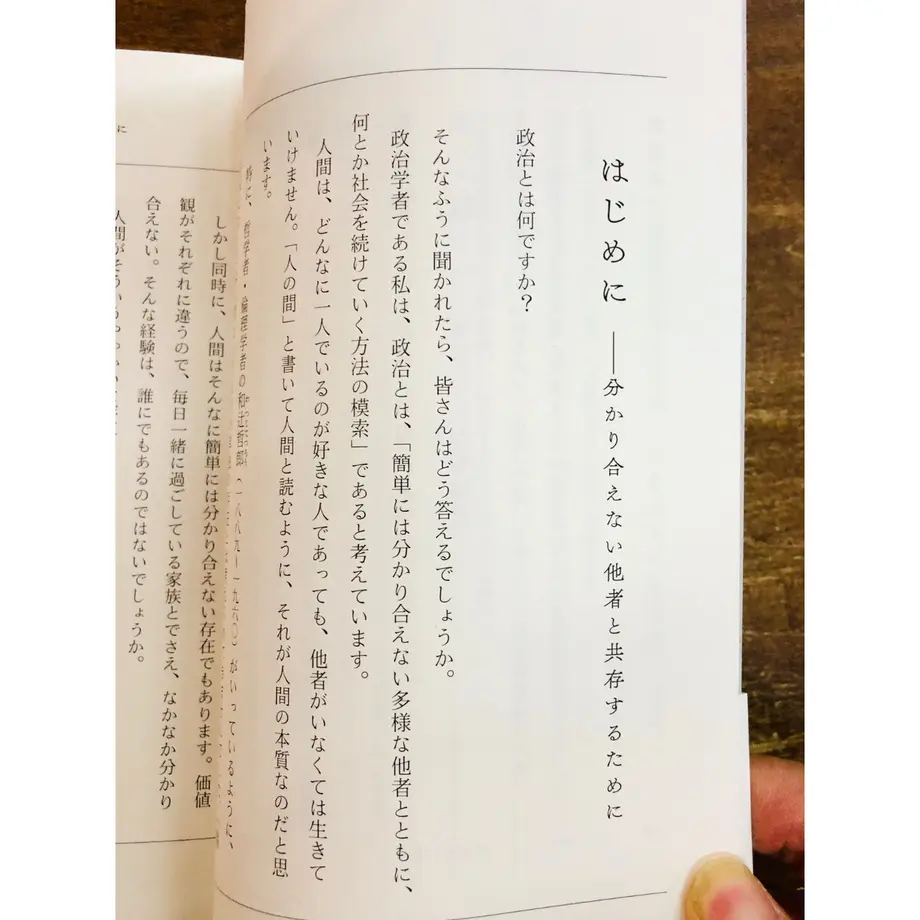 はじめに――分かり合えない他者と共存するために
政治とは何ですか？
そんなふうに聞かれたら、皆さんはどう答えるでしょうか。
政治学者である私は、政治とは、「簡単には分かり合えない多様な他者とともに、
何とか社会を続けていく方法の模索」であると考えています。
人間は、どんなに一人でいるのが好きな人であっても、他者がいなくては生きて
いけません。「人の間」と書いて人間と読むように、それが人間の本質なのだと思
います。
哲学者・倫理学者の和辻哲郎（一八八九―一九六〇）がいっているように、
しかし同時に、人間はそんなに簡単には分かり合えない存在でもあります。価値
観がそれぞれに違うので、毎日一緒に過ごしている家族とでさえ、なかなか分かり
合えない。そんな経験は、誰にでもあるのではないでしょうか。
に